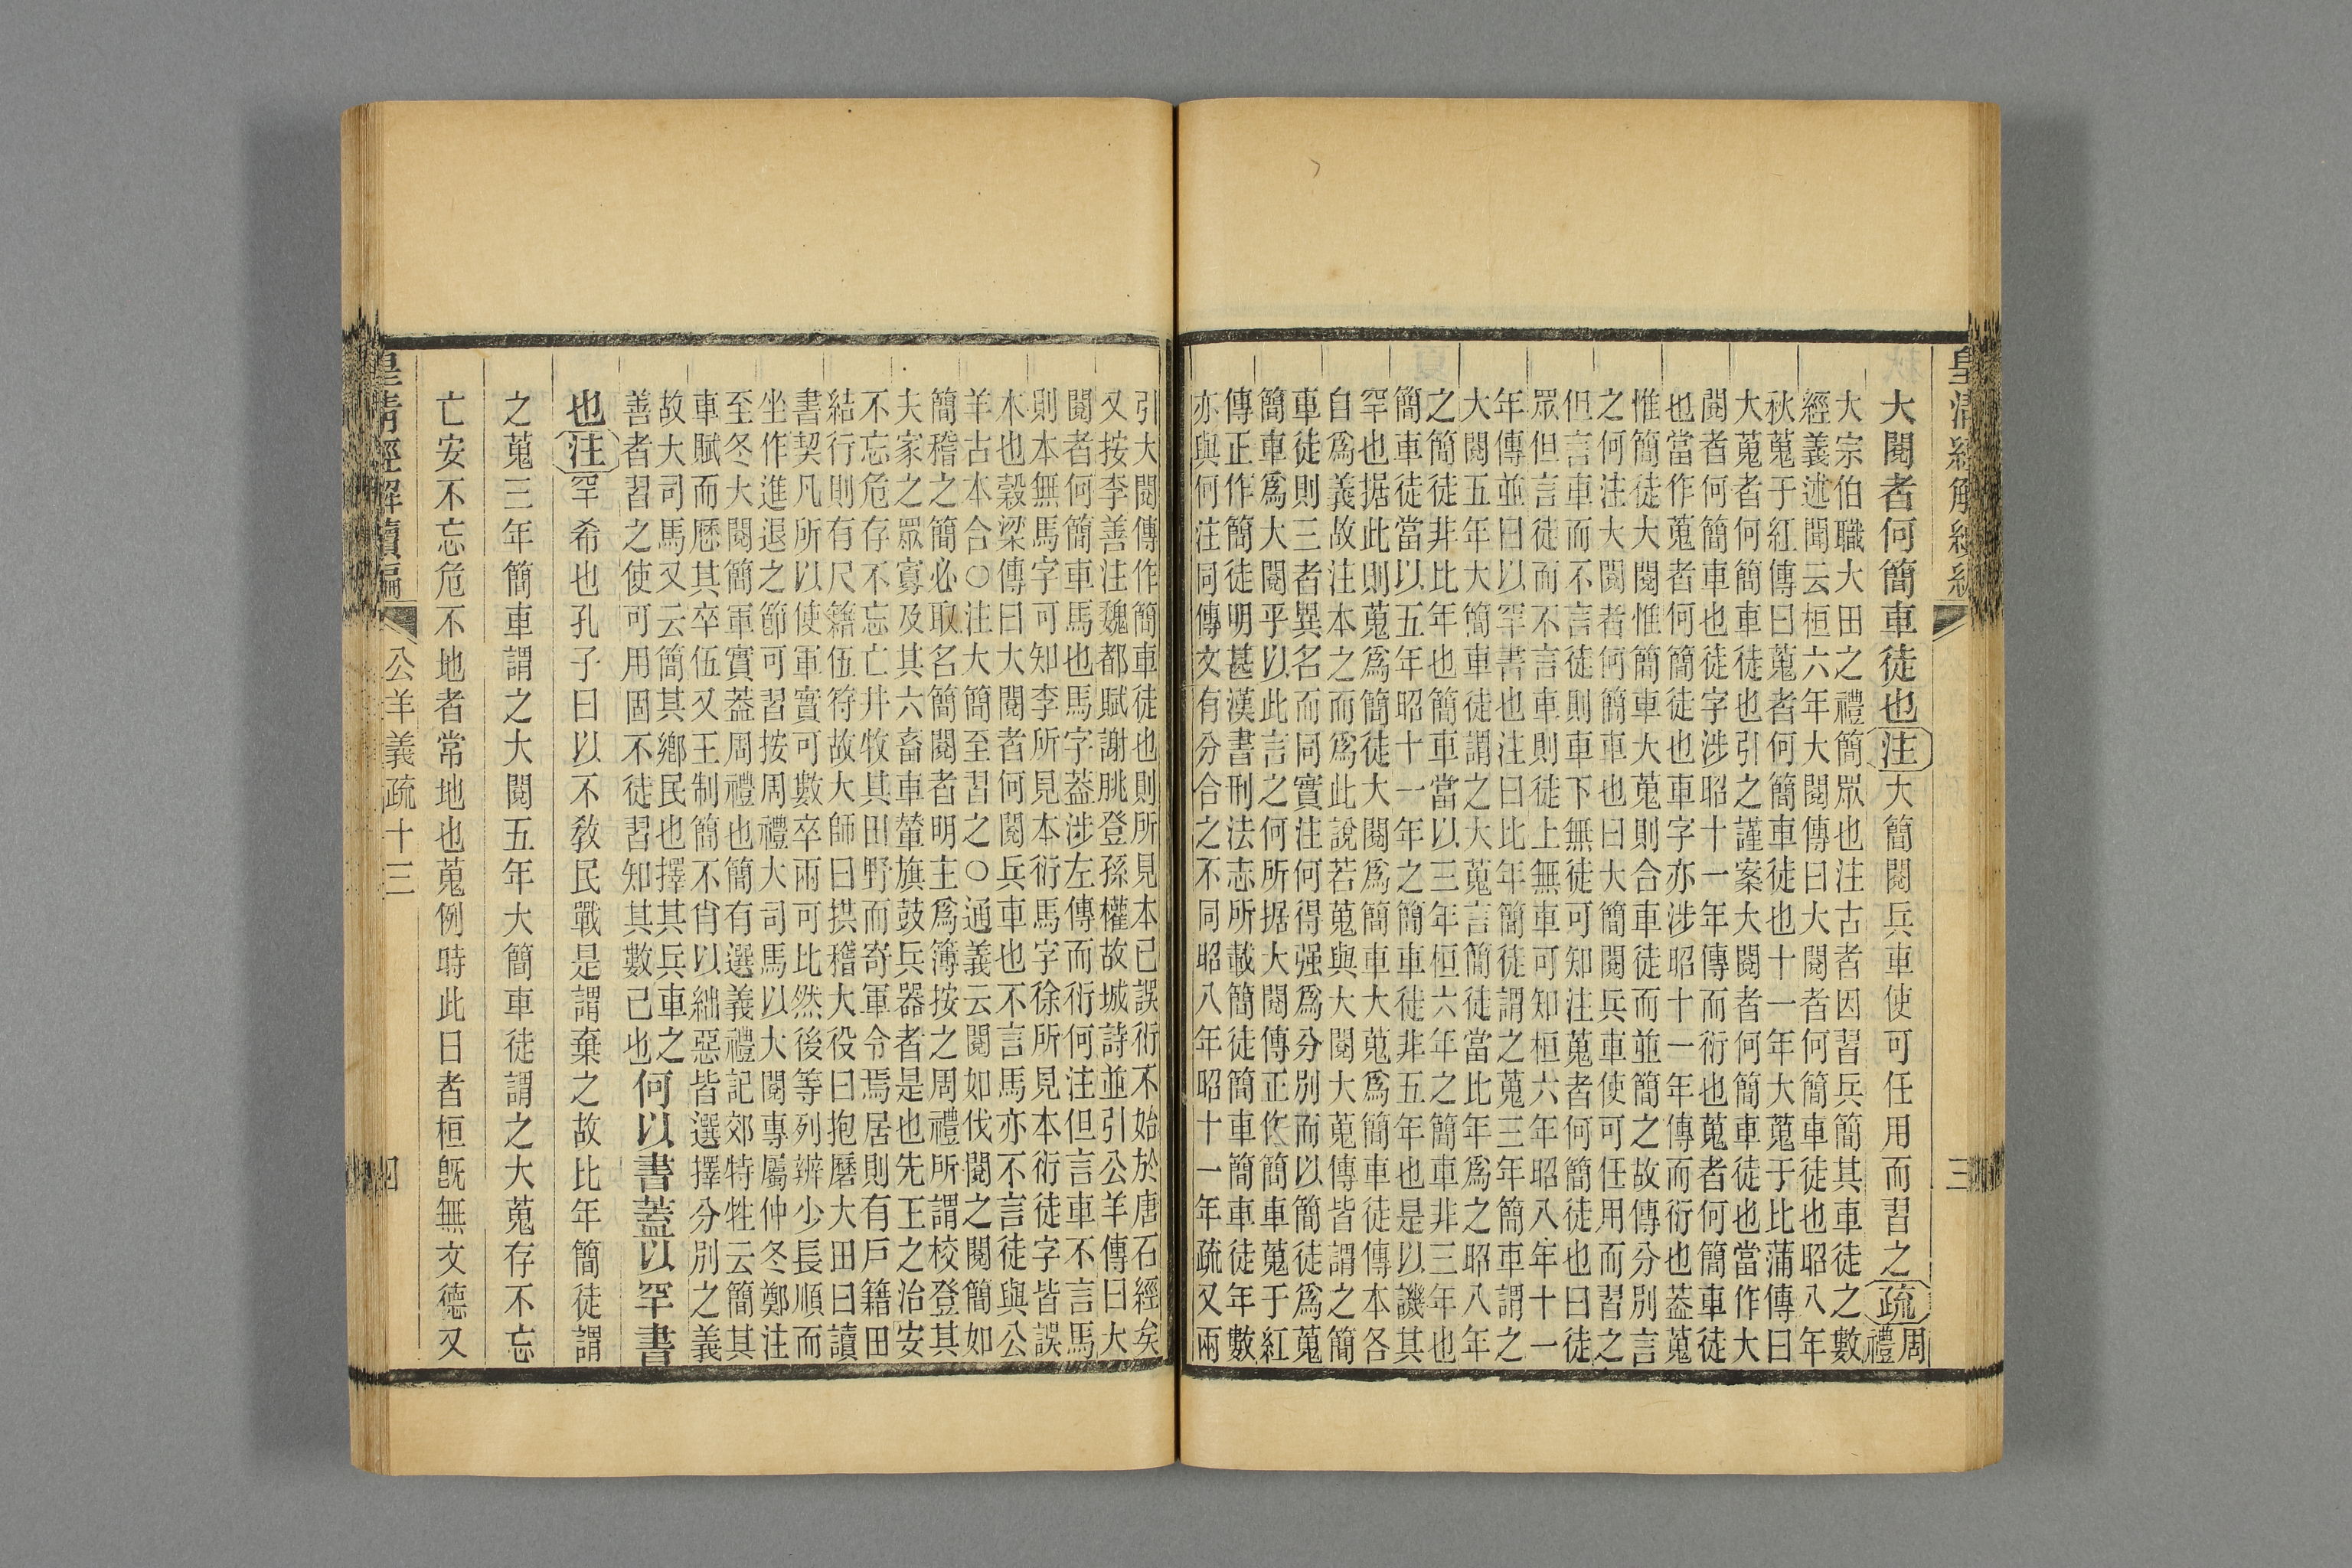 大閱者何簡車徒也注大簡閱兵車使可任用而習之疏周禮
大宗伯職大田之禮簡眾也注古者因習兵簡其車徒之數
經義述聞云桓六年大閱傳曰大閱者何簡車徒也昭八年
秋蒐于紅傳曰蒐者何簡車徒也十一年大蒐于比蒲傳曰
大蒐者何簡車徒也引之謹案大閱者何簡車徒也當作大
閱者何簡車也徒字涉昭十一年傳而衍也蒐者何簡車徒
也當作蒐者何簡徒也車字亦涉昭十一年傳而衍也葢蒐
惟簡徒大閱惟簡車大蒐則合車徒而並簡之故傳分別言
之何注大閱者何簡車也曰大簡閱兵車使可任用而習之
但言車而不言徒則車下無徒可知注蒐者何簡徒也曰徒
眾但言徒而不言車則徒上無車可知桓六年昭八年十一
年傳並曰以罕書也注曰比年簡徒謂之蒐三年簡車謂之
大閱五年大簡車徒謂之大蒐言簡徒當比年爲之昭八年
之簡徒非比年也簡車當以三年桓六年之簡車非三年也
簡車徒當以五年昭十一年之簡車徒非五年也是以譏其
罕也据此則蒐爲簡徒大閱爲簡車大蒐爲簡車徒傳本各
自爲義故注本之而爲此說若蒐與大閱大蒐傳皆謂之簡
車徒則三者異名而同實注何得强爲分別而以簡徒爲蒐
簡車爲大閱乎以此言之何所据大閱傳正作簡車蒐于紅
傳正作簡徒明甚漢書刑法志所載簡徒簡車簡車徒年數
亦與何注同傳文有分合之不同昭八年昭十一年疏又兩
引大閱傳作簡車徒也則所見本已誤衍不始於唐石經矣
又按李善注魏都賦謝朓登孫權故城詩並引公羊傳曰大
閱者何簡車馬也馬字葢涉左傳而衍何注但言車不言馬
則本無馬字可知李所見本衍馬字徐所見本衍徒字皆誤
本也穀梁傳曰大閱者何閱兵車也不言馬亦不言徒與公
羊古本合○注大簡至習之○通義云閱如伐閱之閱簡如
簡稽之簡必取名簡閱者明主爲簿按之周禮所謂校登其
夫家之眾寡及其六畜車輦旗鼓兵器者是也先王之治安
不忘危存不忘亡井牧其田野而寄軍令焉居則有戶籍田
結行則有尺籍伍符故大師曰拱稽大役曰抱磿大田曰讀
書契凡所以使軍實可數卒兩可比然後等列辨少長順而
坐作進退之節可習按周禮大司馬以大閱專屬仲冬鄭注
至冬大閱簡軍實葢周禮也簡有選義禮記郊特牲云簡其
車賦而厯其卒伍又王制簡不肖以絀惡皆選擇分別之義
故大司馬又云簡其鄉民也擇其兵車之
善者習之使可用固不徒習知其數已也何以書葢以罕書
也注罕希也孔子曰以不敎民戰是謂棄之故比年簡徒謂
之蒐三年簡車謂之大閱五年大簡車徒謂之大蒐存不忘
亡安不忘危不地者常地也蒐例時此日者桓旣無文德又
皇清經解續編 公羊義疏十三 四